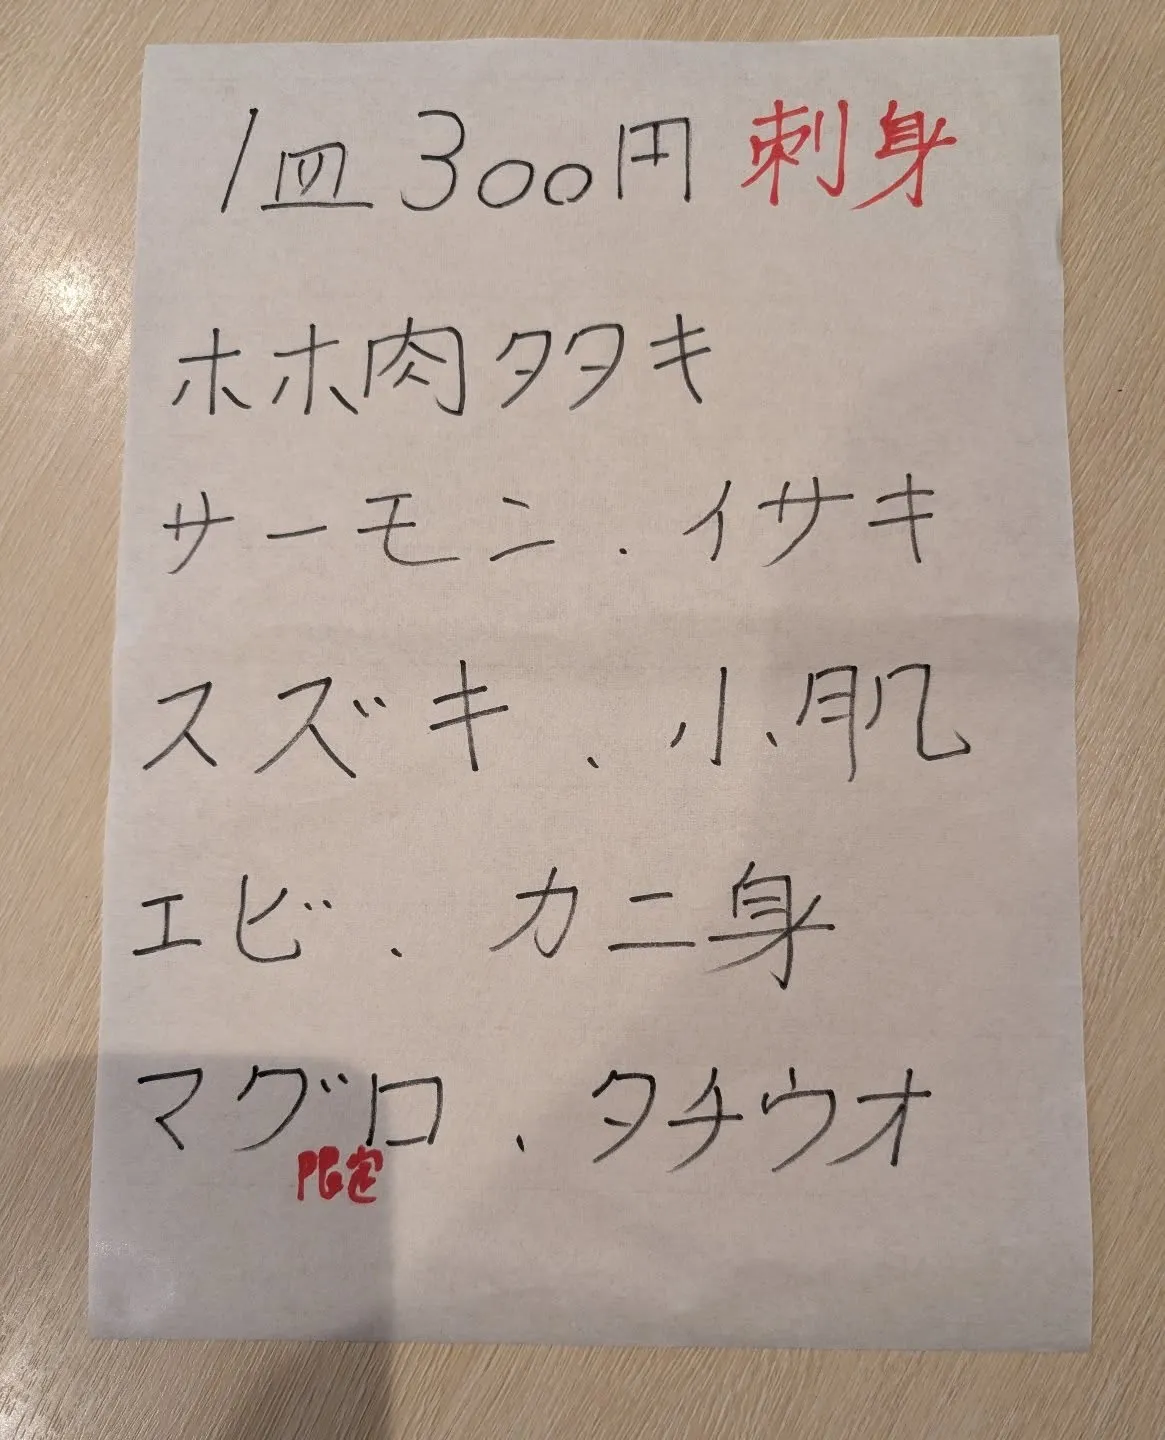 1皿300円 刺身
ホホ肉タタキ
サーモン、イサキ
スズキ、小肌
エビ、カニ身
マグロ、タチウオ
限定